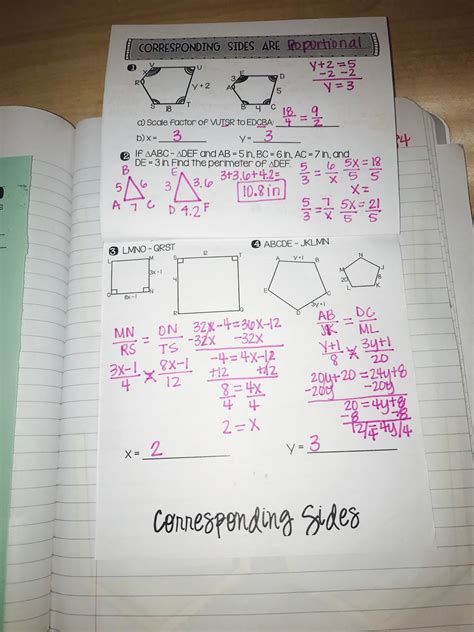 CORRESPONDING SIDES ARE Poportional
1
V U R T S X Y+2 18
E D A C B 3 5 4
Y+2=5
-2 -2
Y=3
a) Scale Factor of VUTSR to EDCBA: 18/4 = 9/2
b) x = 3 y = 3
2 If △ABC ~ △DEF and AB = 5 in, BC = 6 in, AC = 7 in, and
DE = 3 in. Find the perimeter of △DEF.
B 5 6 A 7 C
E 3 3.6 D 4.2 F
3+3.6+4.2=
10.8 in
5/3 = 6/x 5x/5 = 18/5
x=
5/3 = 7/x 5x/5 = 21/5
3 LMNO ~ QRST
L M 3x-1 O 8x-1 N
S 12 T 4
MN/RS = ON/TS
3x-1/4 = 8x-1/12
32x-4=36x-12
-32x -32x
-4=4x-12
+12 +12
8/4 = 4x/4
2=x
x = 2
4 ABCDE ~ JKLMN
A Y+1 B E C D 3y+1
N M J 20 8 L K
AB/JK = DC/ML
y+1/8 = 3y+1/20
20y+20=24y+8
-20y -20y
20=4y+8
-8 -8
12/4=4y/4
y = 3
Corresponding Sides